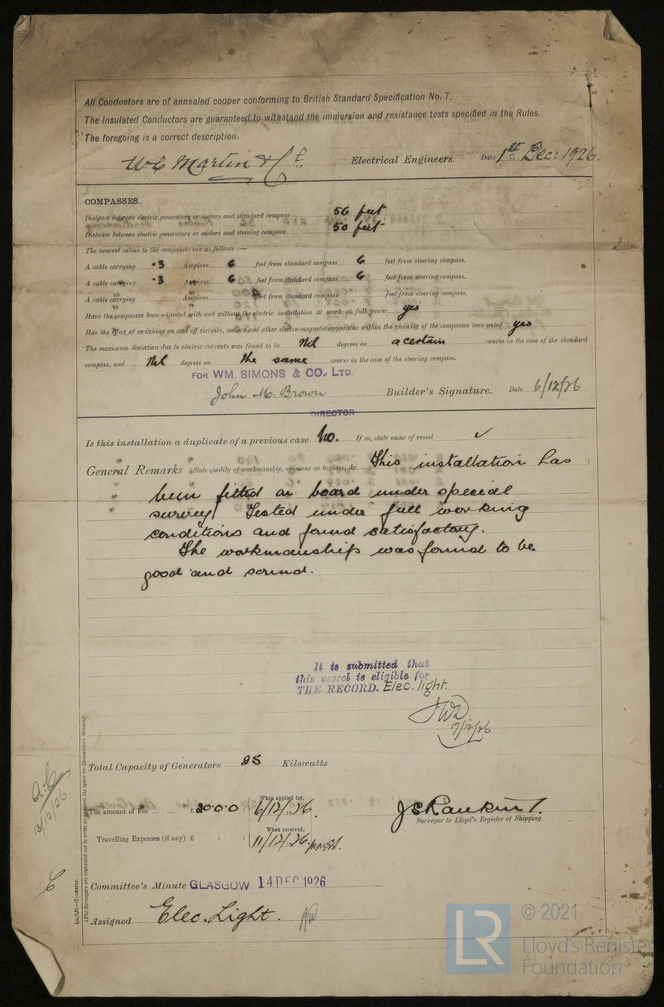 All Conductors are of annealed copper conforming to British Standard Specification No. 7.
The Insulated Conductors are guaranteed to withstand the immersion and resistance tests specified in the Rules.
The foregoing is a correct description.
W C Martin & Co Electrical Engineers. Date 1st Dec: 1926.
COMPASSES.
Distance between electric generators or motors and standard compass 56 feet
Distance between electric generators or motors and steering compass 50 feet
The nearest cables to the compasses are as follows:—
A cable carrying .3 Amperes 6 feet from standard compass 6 feet from steering compass.
A cable carrying .3 Amperes 6 feet from standard compass 6 feet from steering compass.
A cable carrying Amperes feet from standard compass feet from steering compass.
Have the compasses been adjusted with and without the electric installation at work at full power yes
Has the effect of switching on and off circuits, motors and other electro-magnetic apparatus within the vicinity of the compasses been noted yes
The maximum deviation due to electric currents was found to be Nil degrees on a certain course in the case of the standard
compass, and Nil degrees on the same course in the case of the steering compass.
FOR WM. SIMONS & CO., LTD.
John M. Brown Builder's Signature. Date 6/12/26
DIRECTOR
Is this installation a duplicate of a previous case No. If so, state name of vessel
General Remarks (State quality of workmanship, opinions as to class, &c. This installation has
been fitted on board under special
survey. Tested under full working
conditions and found satisfactory.
The workmanship was found to be
good and sound.
It is submitted that
this vessel is eligible for
THE RECORD. Elec. light.
17/12/26
Total Capacity of Generators 25 Kilowatts
The amount of Fee £ 20.0.0 When applied for, 6/12/1926.
J C Rankin
Surveyor to Lloyd's Register of Shipping.
Travelling Expenses (if any) £ : : When received, 11/12/26
Committee's Minute GLASGOW 14 DEC 1926
Assigned Elec. Light.
13/12/26
LR © 2021
Lloyd's Register
Foundation